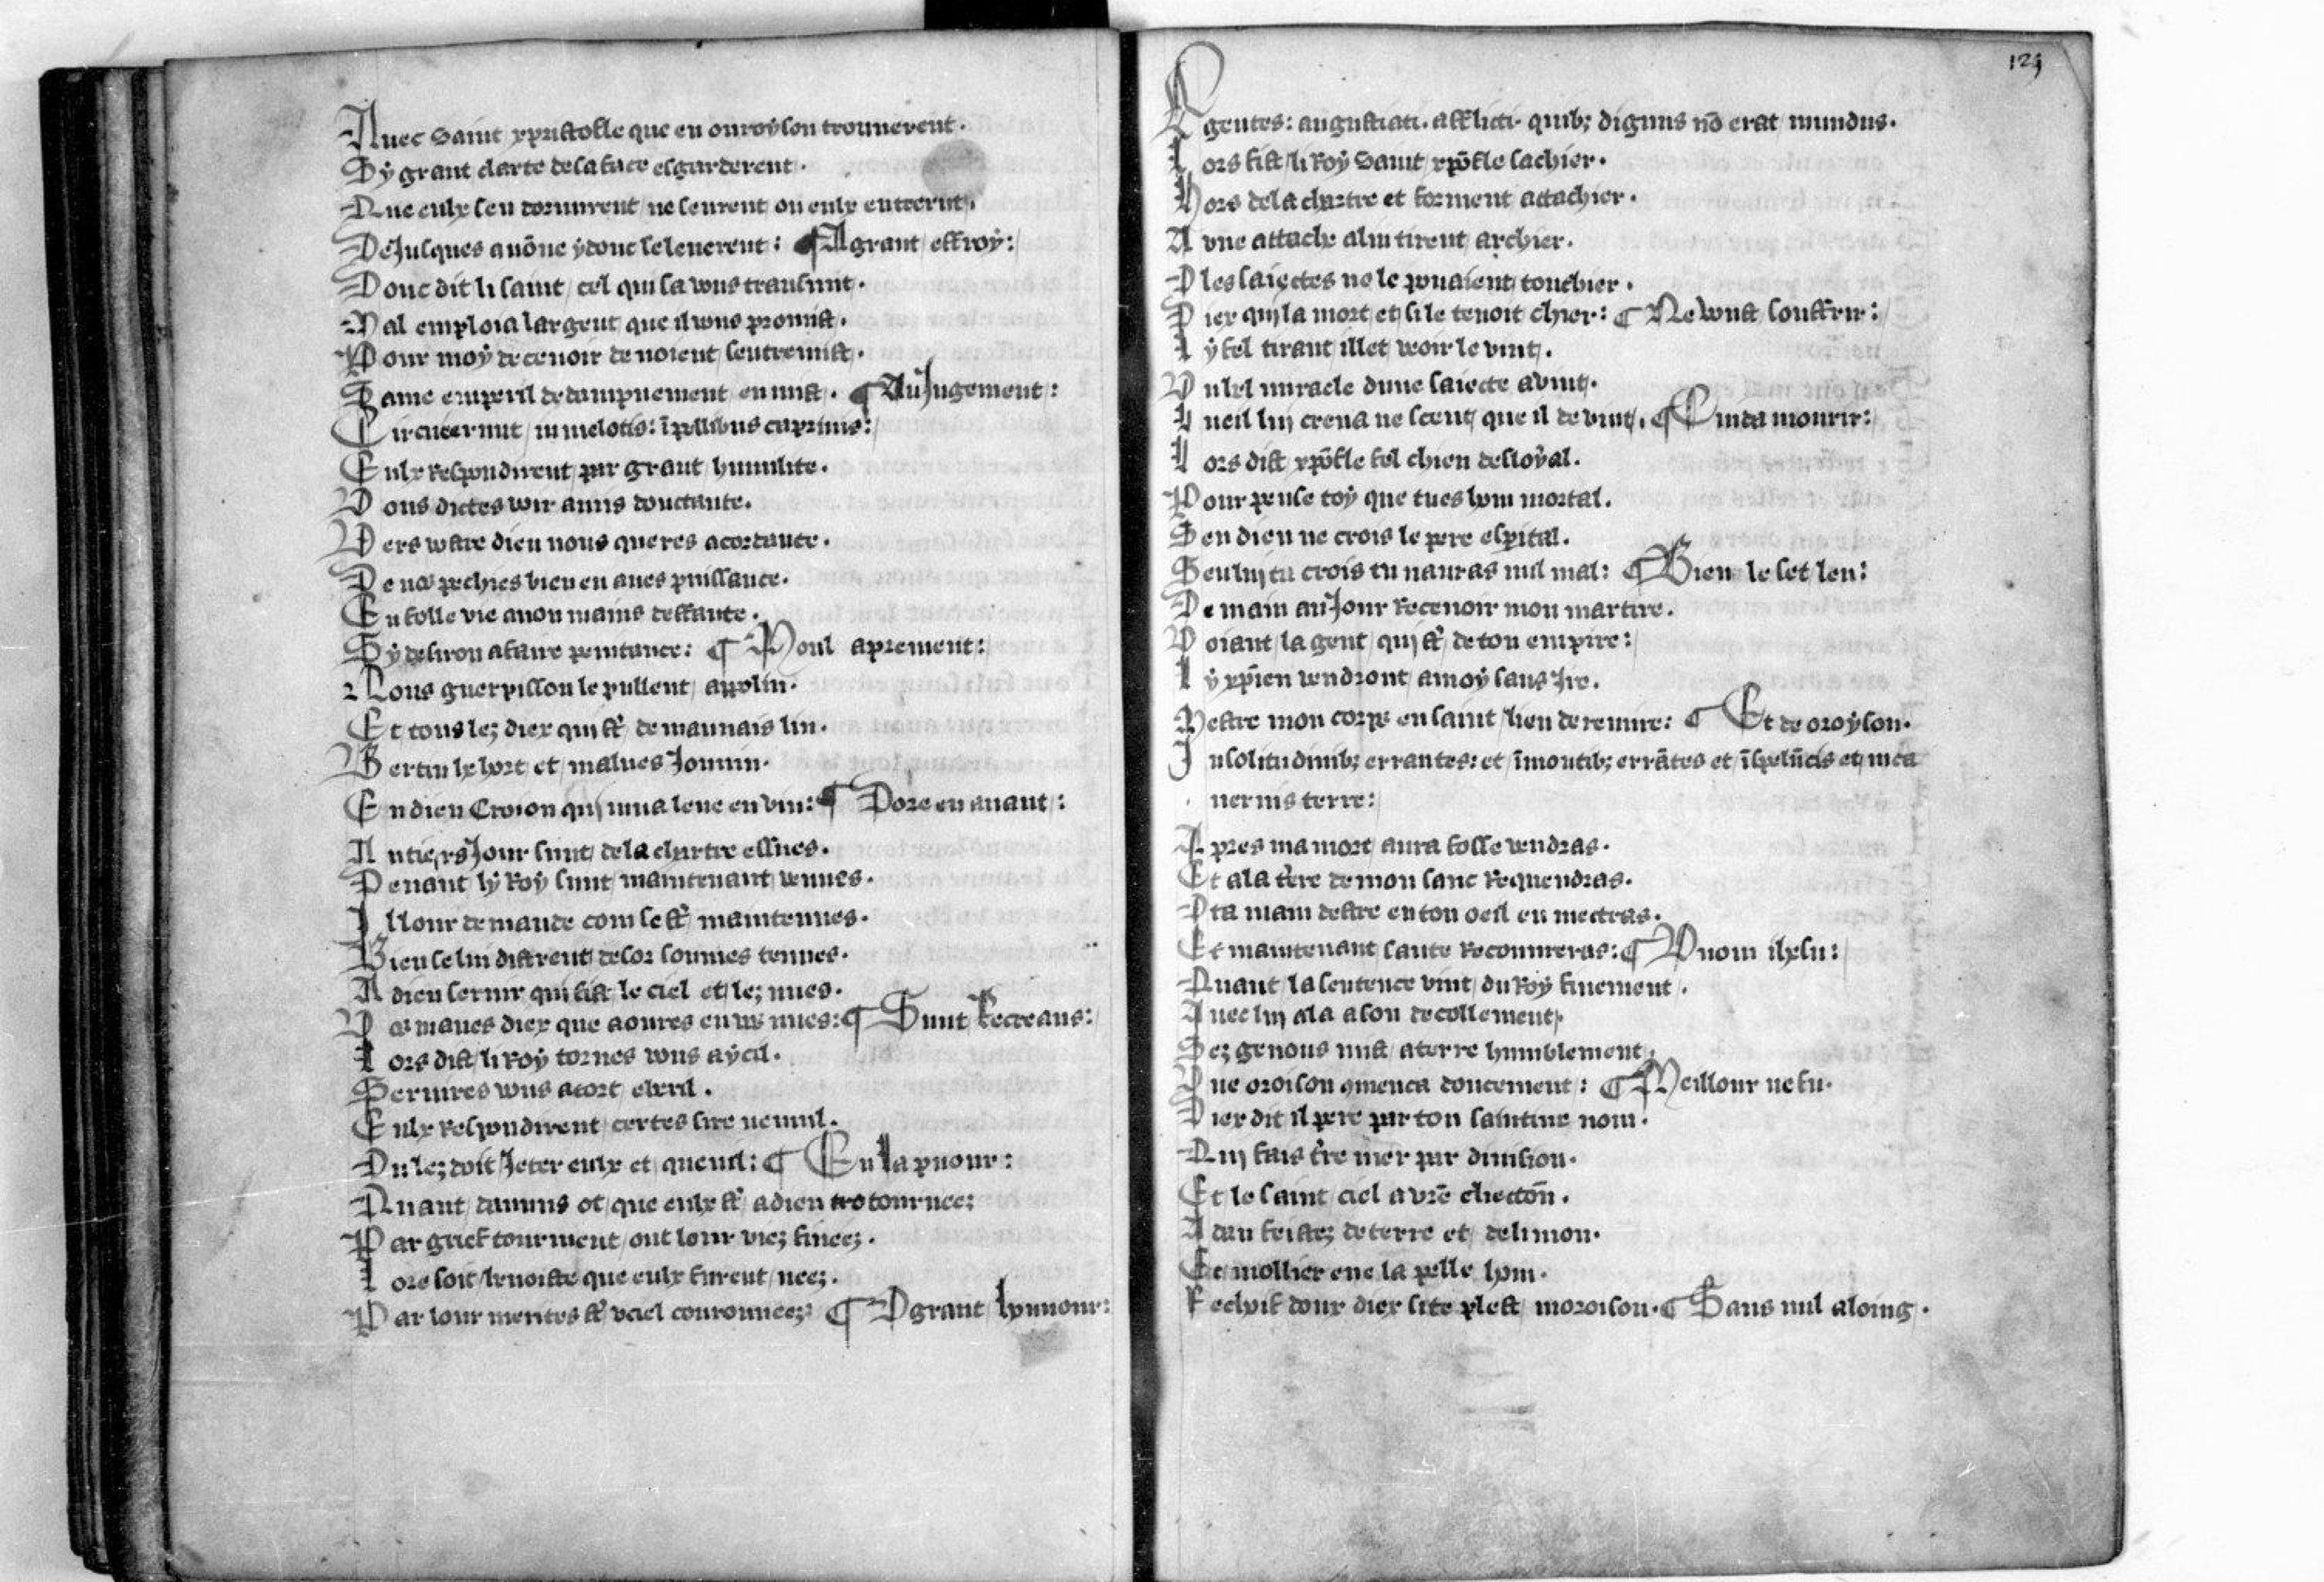 Auec Saint xpristofle que en ouroyson trouuerent.
Sy grant clarte de sa face esgarderent.
Que eulx sen ne seurent ou eulx
De jusques a nõne ydonc se leuerent: ¶ A grant effroy:
Donc dit li saint cel qui sa vous transmit.
Mal emploia largent que il vous promist.
Pour moy deceuoir de noient sentremist.
Same em peril de dampnement en mist. ¶ Au Jugement:
Circuierunt in melotis: ĩ pellibus caprinis:
Eulx respondirent par grant humilite.
Vous dictes voir amis doutante.
Vers vostre dieu nous queres acordance.
De nos pechies bien en aues puissance.
En folle vie auon mains
Sy desiron a faire penitance: ¶ Moul aprement:
Nous guerpisson le pullent apolin.
Et tous lez diex qui sõt de mauuais lin.
et malues Jouuin.
En dieu Croion qui mua leue en vin: ¶ Dore en auant:
Au tiers Jour sunt de la chartre essues.
Deuant ly Roy sunt maintenant venues.
Il lour demande com se sõt maintenues.
Bien se lui distrent de sor soumes tenues.
A dieu seruir qui fist le ciel et lez nues.
maues diex que aoures en vos mues: ¶ Sunt Recreans:
Lors dist li Roy tornes vous aycil.
Serires vous a tort
Eulx respondirent certes sire nennil.
Du lez doit Jeter eulx et queuil: ¶ En la puour:
Quant danus ot que eulx sõt a dieu tro tournee:
Par grief tourment ont lour viez fineez.
Lore soit benoiste que eulx furent neez.
Par lour merites sõt v ciel couronneez: ¶ A grant honnour:
129
Agentes: angustiati. afflicti. quib; dignus nõ erat mundus.
Lors fist li Roy Saint xpõfle sachier.
Hors de la chartre et forment attachier.
A vne attache a lui tirent archier.
les saiectes ne le pouaient touchier.
Dier qui la mort et si le tenoit chier: ¶ Ne voust souffrir:
Ly fel tirant illec veoir le vint.
Vn bel miracle dune saiecte avint.
Lueil lui creua ne sceut que il devint. ¶ Cuida mourir:
Lors dist xpõfle fel chien desloyal.
Pour pense toy que tu es hom mortal.
Sen dieu ne crois le pere espital.
Sen lui tu crois tu nauras nul mal: ¶ Bien le set len:
Demain au Jour Receuoir mon martire.
Voiant la gent qui sõt de ton empire:
Ly xp̃ien vendront a moy sans Ire.
Mestre mon corps en saint lieu de remire: ¶ Et de oroyson.
In solitudinib; errantes: et ĩ montib; errãtes et ĩ spelũcis et in ca
uernis terre:
Apres ma mort aura folle vendras.
Et a la tere de mon sanc Requendras.
O ta main destre en ton oeil en mectras.
Et maintenant sante Recouureras: ¶ V nom ihesu:
Quant la sentence vint du Roy finement.
Auec lui ala a son decollement.
Sez genous mist a terre humblement.
Vne oroison 9menca doucement: ¶ Meillour ne fu.
Diex dit il pere par ton saintime nom.
Qui fais tre mer par diuision.
Et le saint ciel a vrẽ electõn.
Adan feistez de terre et de limon.
Et mollier eue la pelle hom.
Recheif doux diex site plest moroison. ¶ Sans nul aloing.